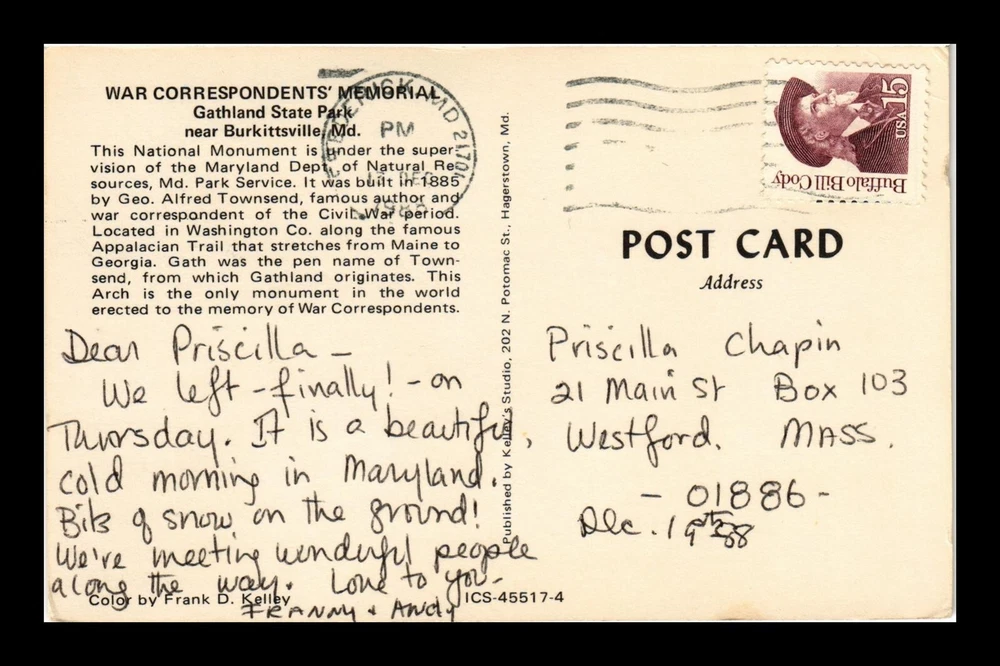 WAR CORRESPONDENTS' MEMORIAL
Gathland State Park
near Burkittsville, Md.
This National Monument is under the super-
vision of the Maryland Dept. of Natural Re-
sources, Md. Park Service. It was built in 1885
by Geo. Alfred Townsend, famous author and
war correspondent of the Civil War period.
Located in Washington Co. along the famous
Appalacian Trail that stretches from Maine to
Georgia. Gath was the pen name of Town-
send, from which Gathland originates. This
Arch is the only monument in the world
erected to the memory of War Correspondents.
FREDERICK MD 21701
PM
DEC
Dear Priscilla –
We left - finally! - on
Thursday. It is a beautiful,
cold morning in Maryland.
Bits of snow on the ground!
We're meeting wonderful people
along the way. Love to you-
FRANNY & ANDY
Color by Frank D. Kelley
ICS-45517-4
Published by Kelley's Studio, 202 N. Potomac St., Hagerstown, Md.
Buffalo Bill Cody
USA 15
POST CARD
Address
Priscilla Chapin
21 Main St Box 103
Westford. MASS.
- 01886 -
Dec. 19th 88